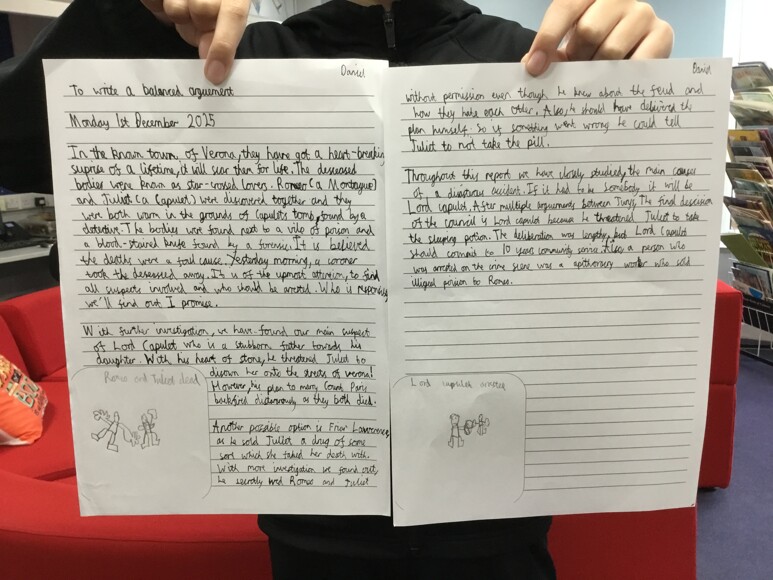 Daniel
To write a balanced arguement
Monday 1st December 2025
In the known town, of Verona, they have got a heart-breaking
suprise of a lifetime, it will scar them for life. The deseased
bodies were known as star-crossed lovers. Romeo (a Montague)
and Juliet (a Capulet) were discovered together and they
were both worn in the grounds of Capulets tomb, found by a
detective. The bodies were found next to a vile of poison and
a blood-stained knife found by a forensic. It is believed
the deaths were a foul cause. Yesterday morning, a coroner
took the desessed away. It is of the upmost attention, to find
all suspects involved and who should be arrested. Who is
we'll find out I promise.
With further investigation, we have found our main suspect
of Lord Capulet who is a stubborn father towards his
daughter. With his heart of stone, he threatened Juliet to
disown her onto the streets of verona!
However, his plan to marry Count Paris
backfired as they both died.
Another possible option is Friar Lawerence
as he sold Juliet a drug of some
sort which she faked her death with.
With more investigation we found out,
he secretly wed Romeo and Juliet
Romeo and Juliet dead
Daniel
without permission even though he knew about the feud and
how they hate each other. Also, he should have delivered the
plan himself. So if something went wrong he could tell
Juliet to not take the pill.
Throughout this report we have closely studied the main causes
of a disastrous accident. If it had to be somebody it will be
Lord capulet. After multiple arguments between Jurys. The final
of the council is Lord capulet because he threatened Juliet to take
the sleeping potion. The deliberation was lengthy, but Lord Capulet
should commit to 10 years community service. Also a person who
was arrested on the crime scene was a apithecary who sold
illegal poison to Romeo.
Lord capulet arrested